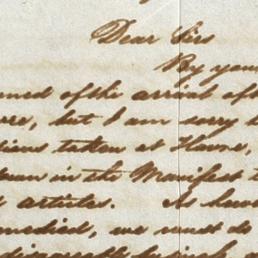 Dear Sirs
By your
med of the arrival of
ere, but I am sorry t
tions taken at Havre,
in the Manifest t
articles. As how
medied, we must do